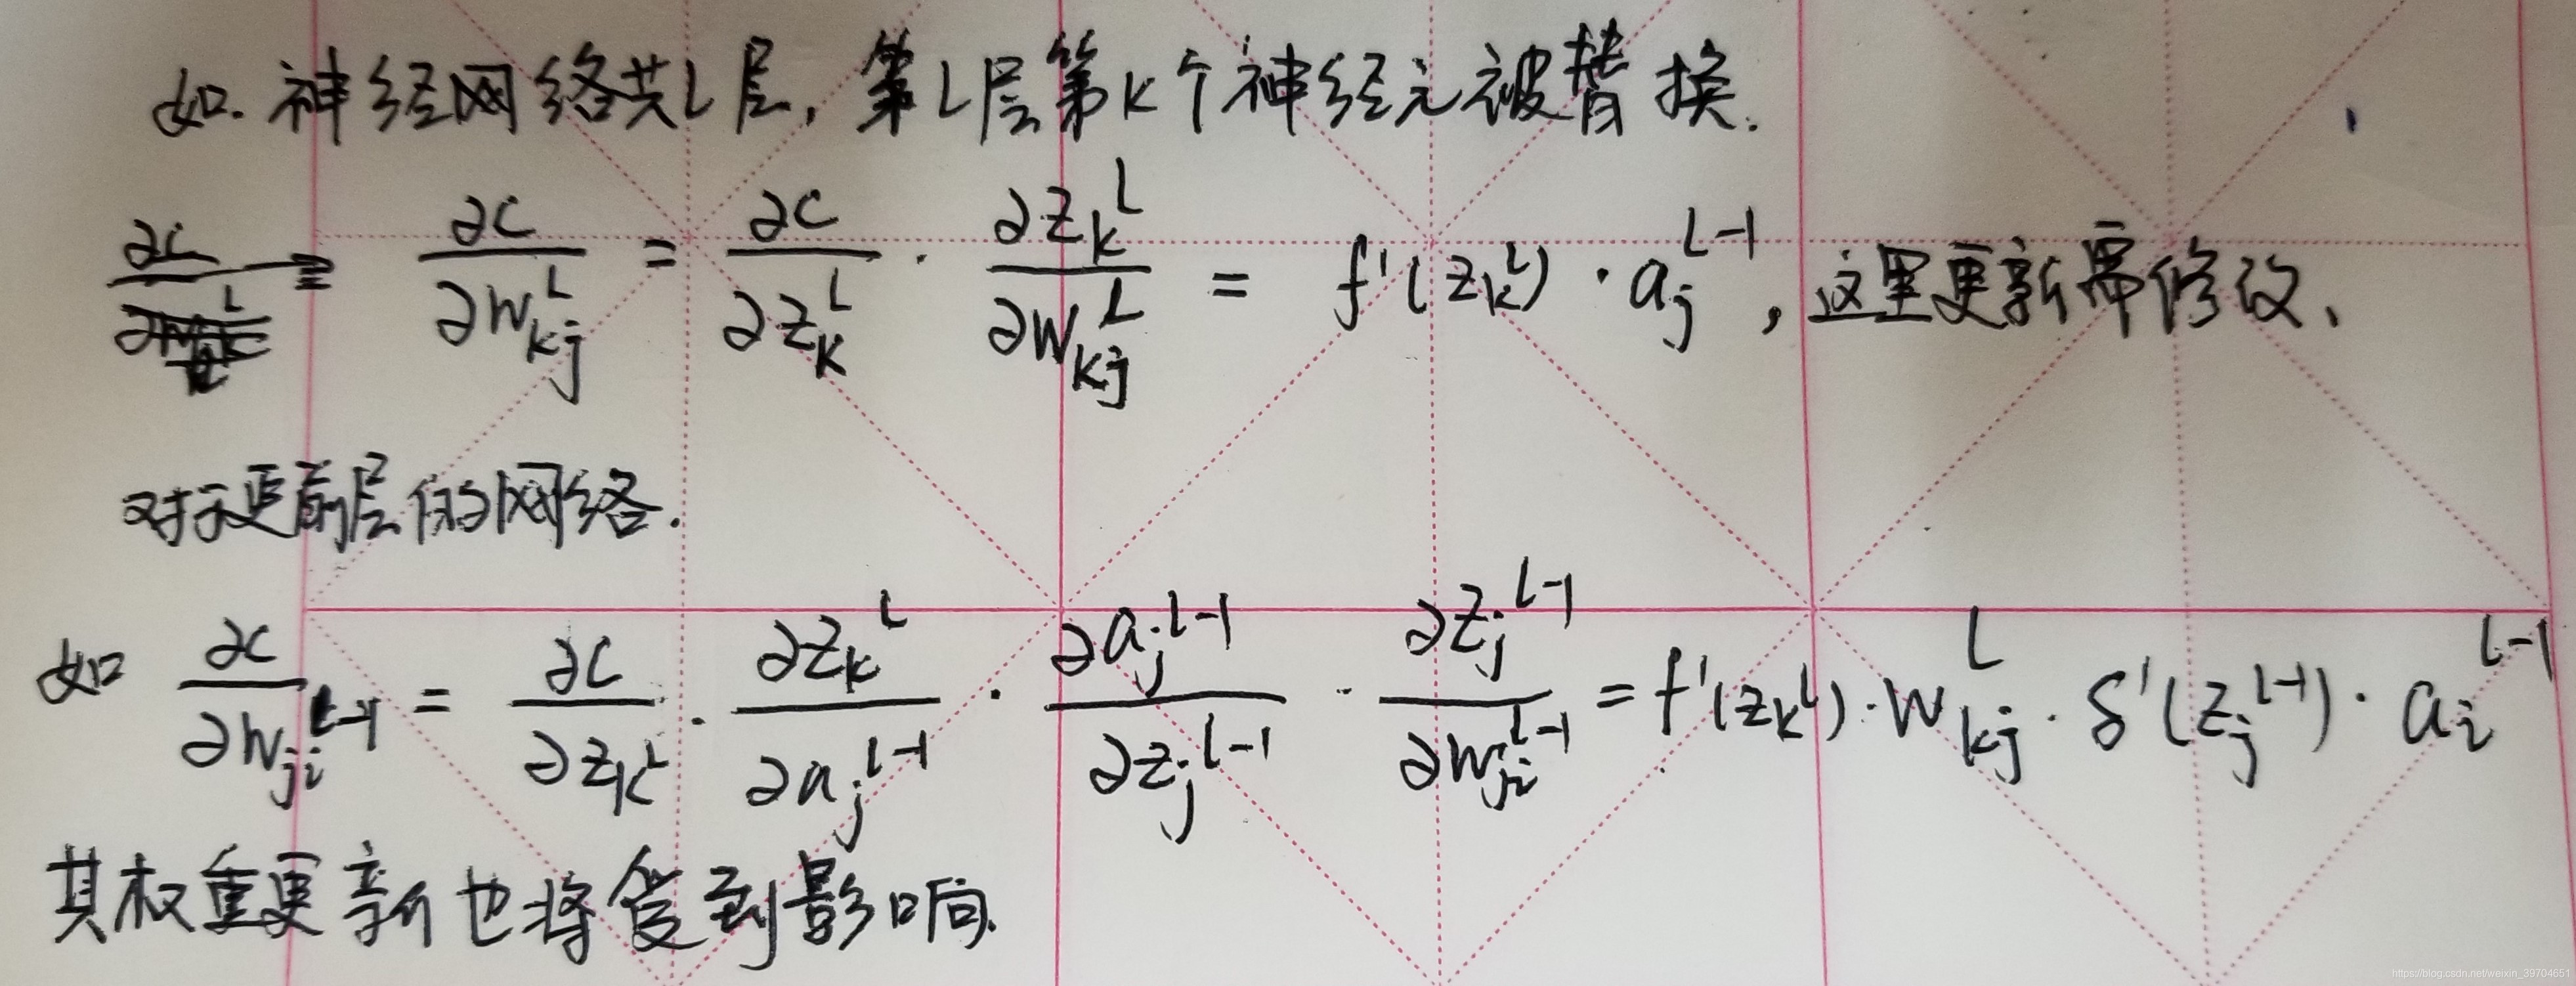 如. 神经网络共L层, 第L层第K个神经元被替换.
∂C/∂w_{kj}^L = ∂C/∂z_k^L · ∂z_k^L/∂w_{kj}^L = f'(z_k^L) · a_j^{L-1}, 这里更新需修改、
对于更前层的网络.
如 ∂C/∂w_{ji}^{L-1} = ∂C/∂z_k^L · ∂z_k^L/∂a_j^{L-1} · ∂a_j^{L-1}/∂z_j^{L-1} · ∂z_j^{L-1}/∂w_{ji}^{L-1} = f'(z_k^L) · w_{kj}^L · δ'(z_j^{L-1}) · a_i^{L-1}
其权重更新也将受到影响.
https://blog.csdn.net/weixin_39704651